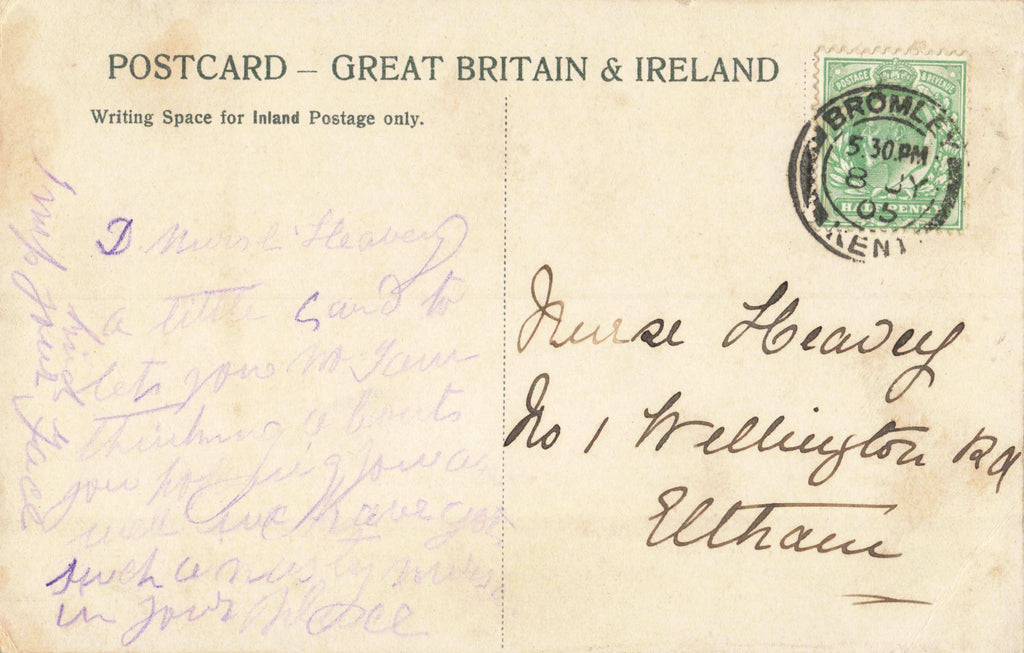 POSTCARD – GREAT BRITAIN & IRELAND
Writing Space for Inland Postage only.
POSTAGE & REVENUE
HALFPENNY
BROMLEY
5 30.PM
8 JY
05
KENT
D Nurse Heavey
a little Card to
lets you no I am
thinking abouts
you hopeing you as
well we have got
such a nasty nurse
in your Place
I miss your
kind face
Nurse Heavey
No 1 Wellington Rd
Eltham